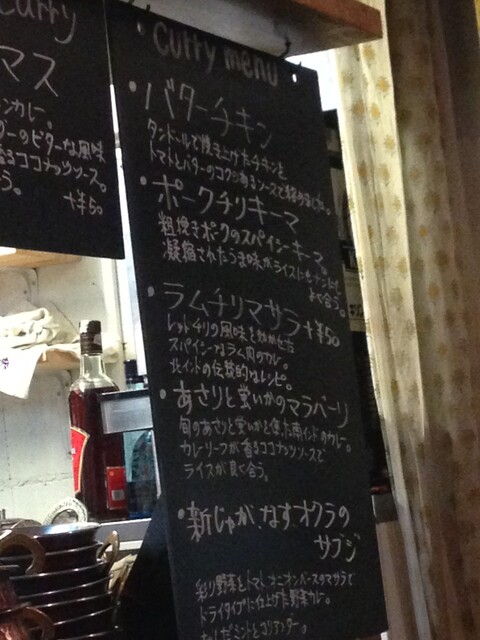 curry
マス
ンカレー。
のビターな風味
るココナッツソース。
う。
+¥50
curry menu
・バターチキン
タンドールで焼き上げたチキンを
トマトとバターのコクのあるソースで
・ポークチリキーマ
粗挽きポークのスパイシーキーマ。
凝縮されたうま味がライスにもナンにも
よく合う。
・ラムチリマサラ +¥50
レッドチリの風味を効かせた
スパイシーなラム肉のカレー。
北インドの伝統的なレシピ。
・あさりと蛍いかのマラバーリ
旬のあさりと蛍いかを使った南インドのカレー。
カレーリーフが香るココナッツソースで
ライスが良く合う。
・新じゃが、なす、オクラの
サブジ
彩り野菜とトマト、オニオンベースのマサラで
ドライタイプに仕上げた野菜カレー。
ミントとコリアンダー